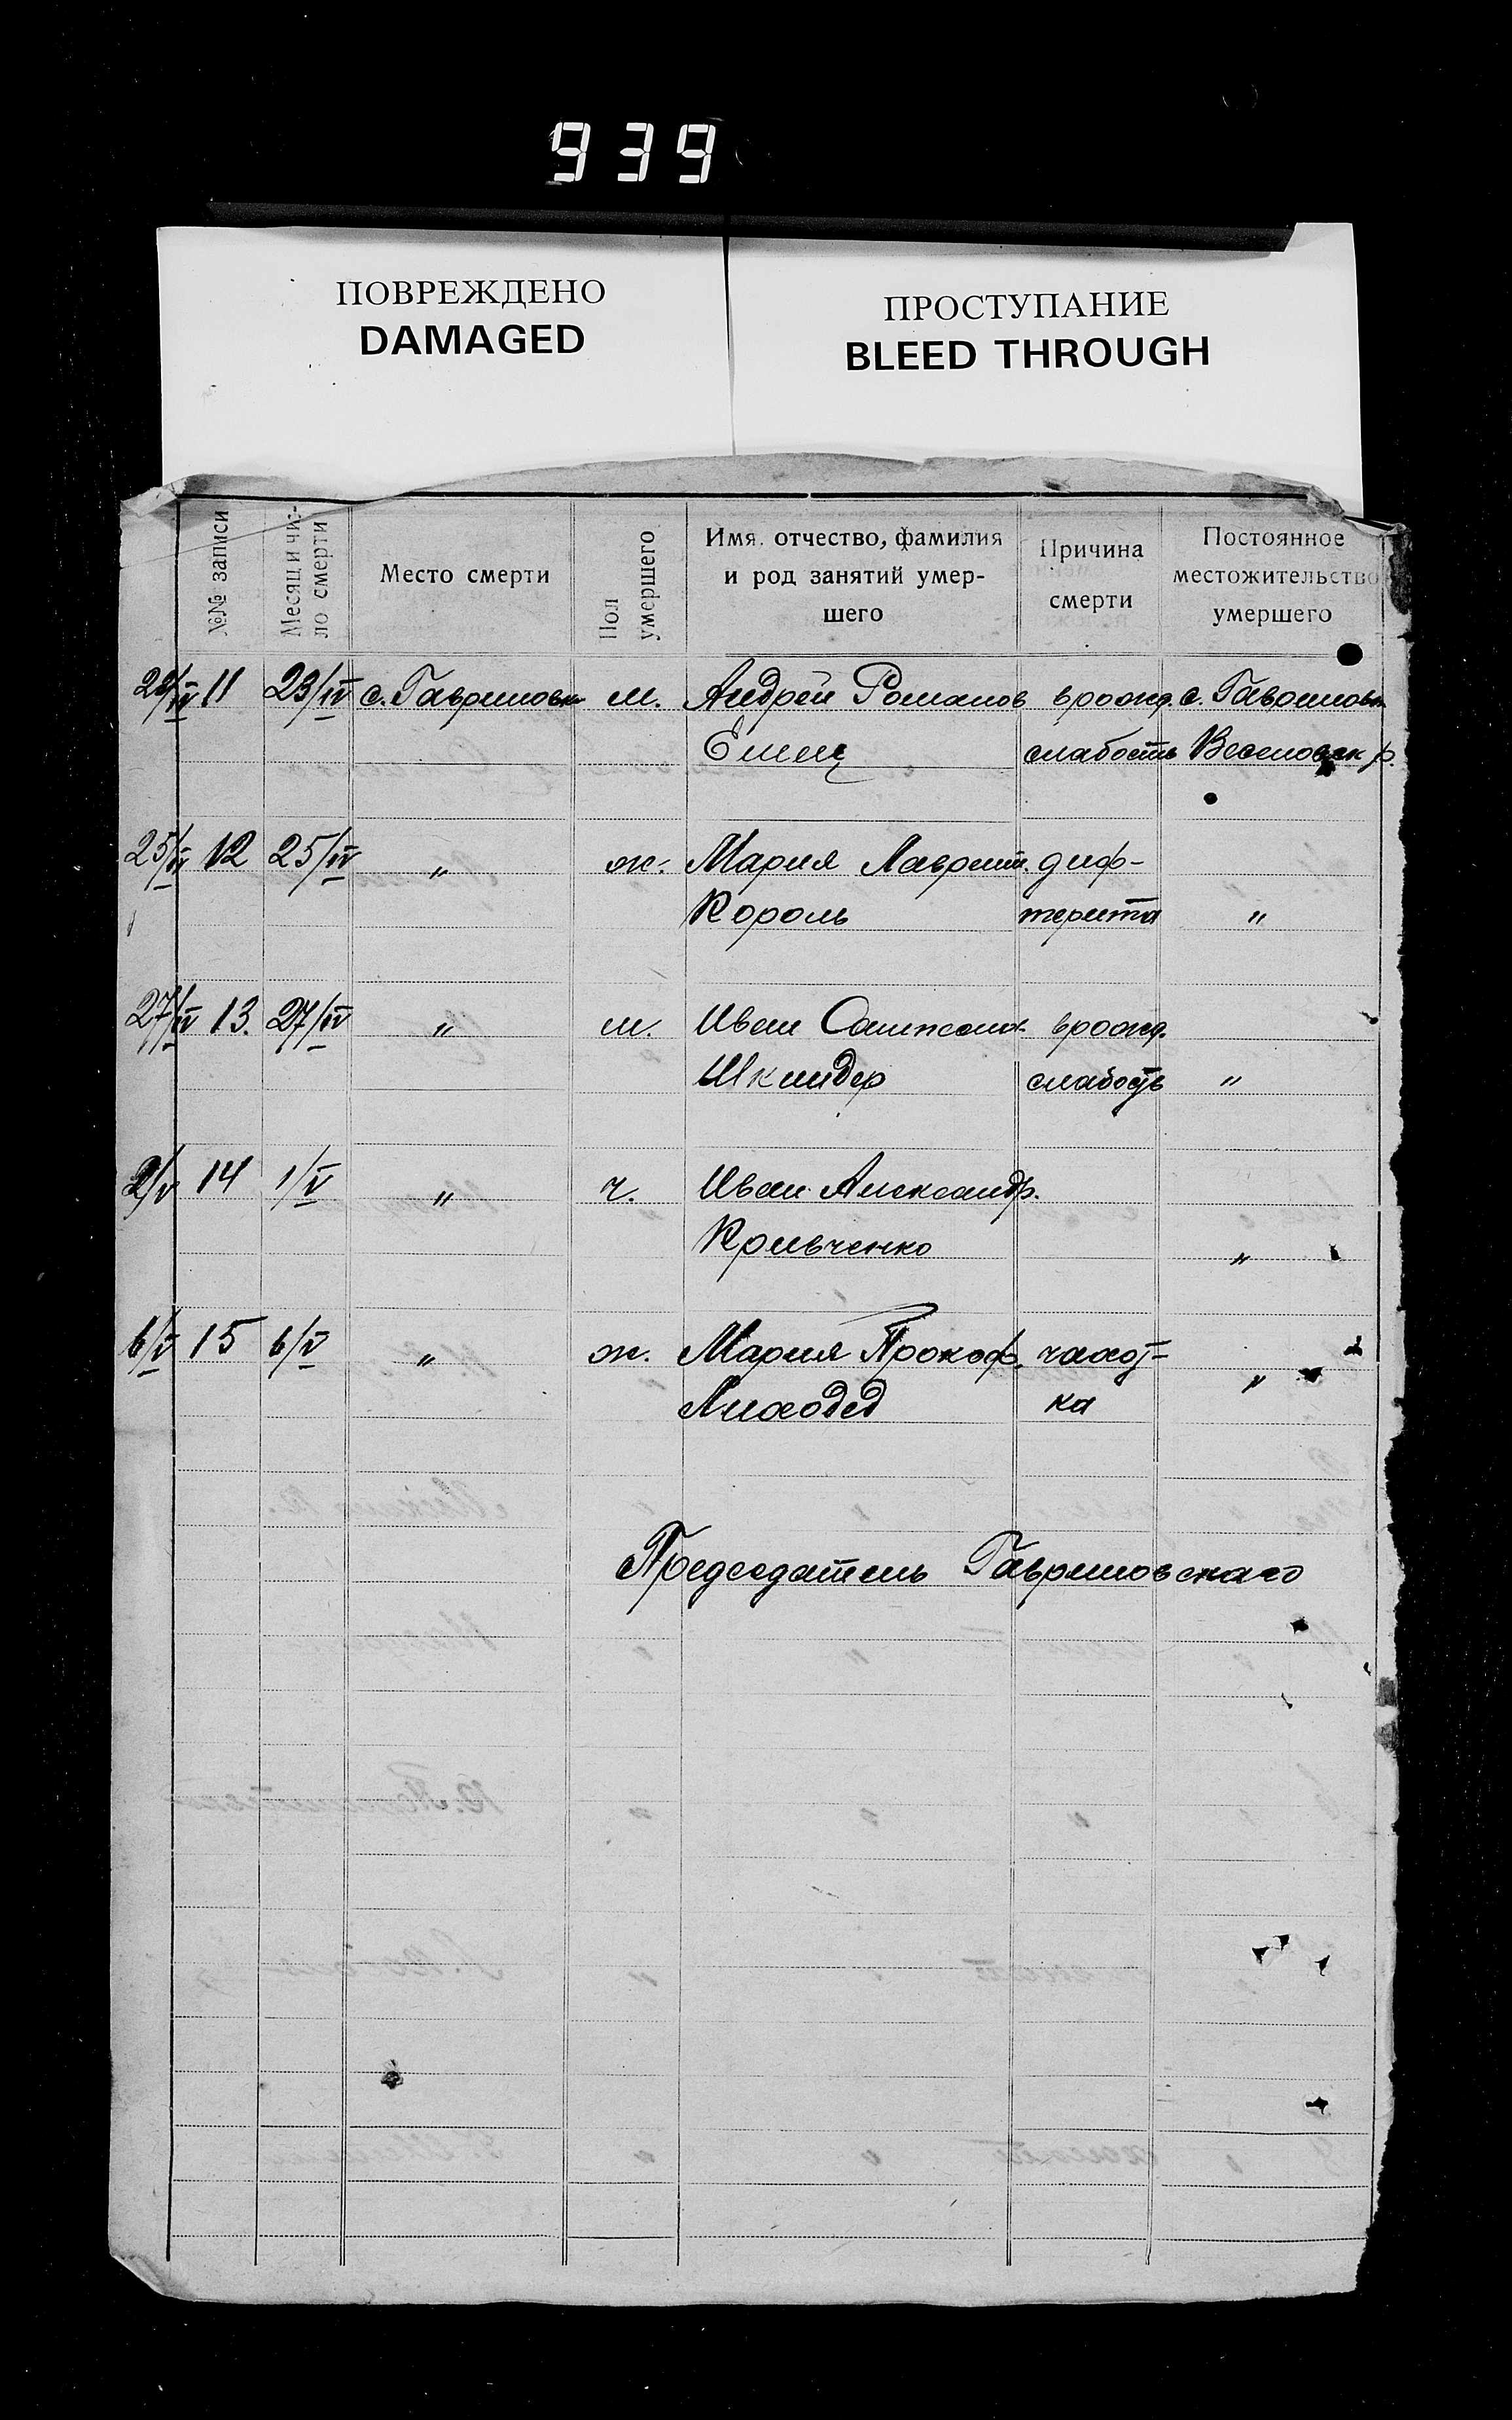 939
ПОВРЕЖДЕНО
DAMAGED
ПРОСТУПАНИЕ
BLEED THROUGH
№№ записи
Месяц и чис-
ло смерти
Место смерти
Пол
умершего
Имя. отчество, фамилия
и род занятий умер-
шего
Причина
смерти
Постоянное
местожительство
умершего
11 23/IV с. Гавриловка м. Андрей Романов врожд. с. Гавриловка
Емец слабость Веселовск р.
25/IV 12 25/IV " ж. Мария Лаврент. диф-
Король терита "
27/IV 13. 27/IV " м. Иван Сампсонов врожд.
Шкиндер слабость "
2/V 14 1/V " ч. Иван Александр.
Кривченко "
6/V 15 6/V " ж. Мария Прокоф. чахот-
Лиходед ка "
Председатель Гавриловскаго